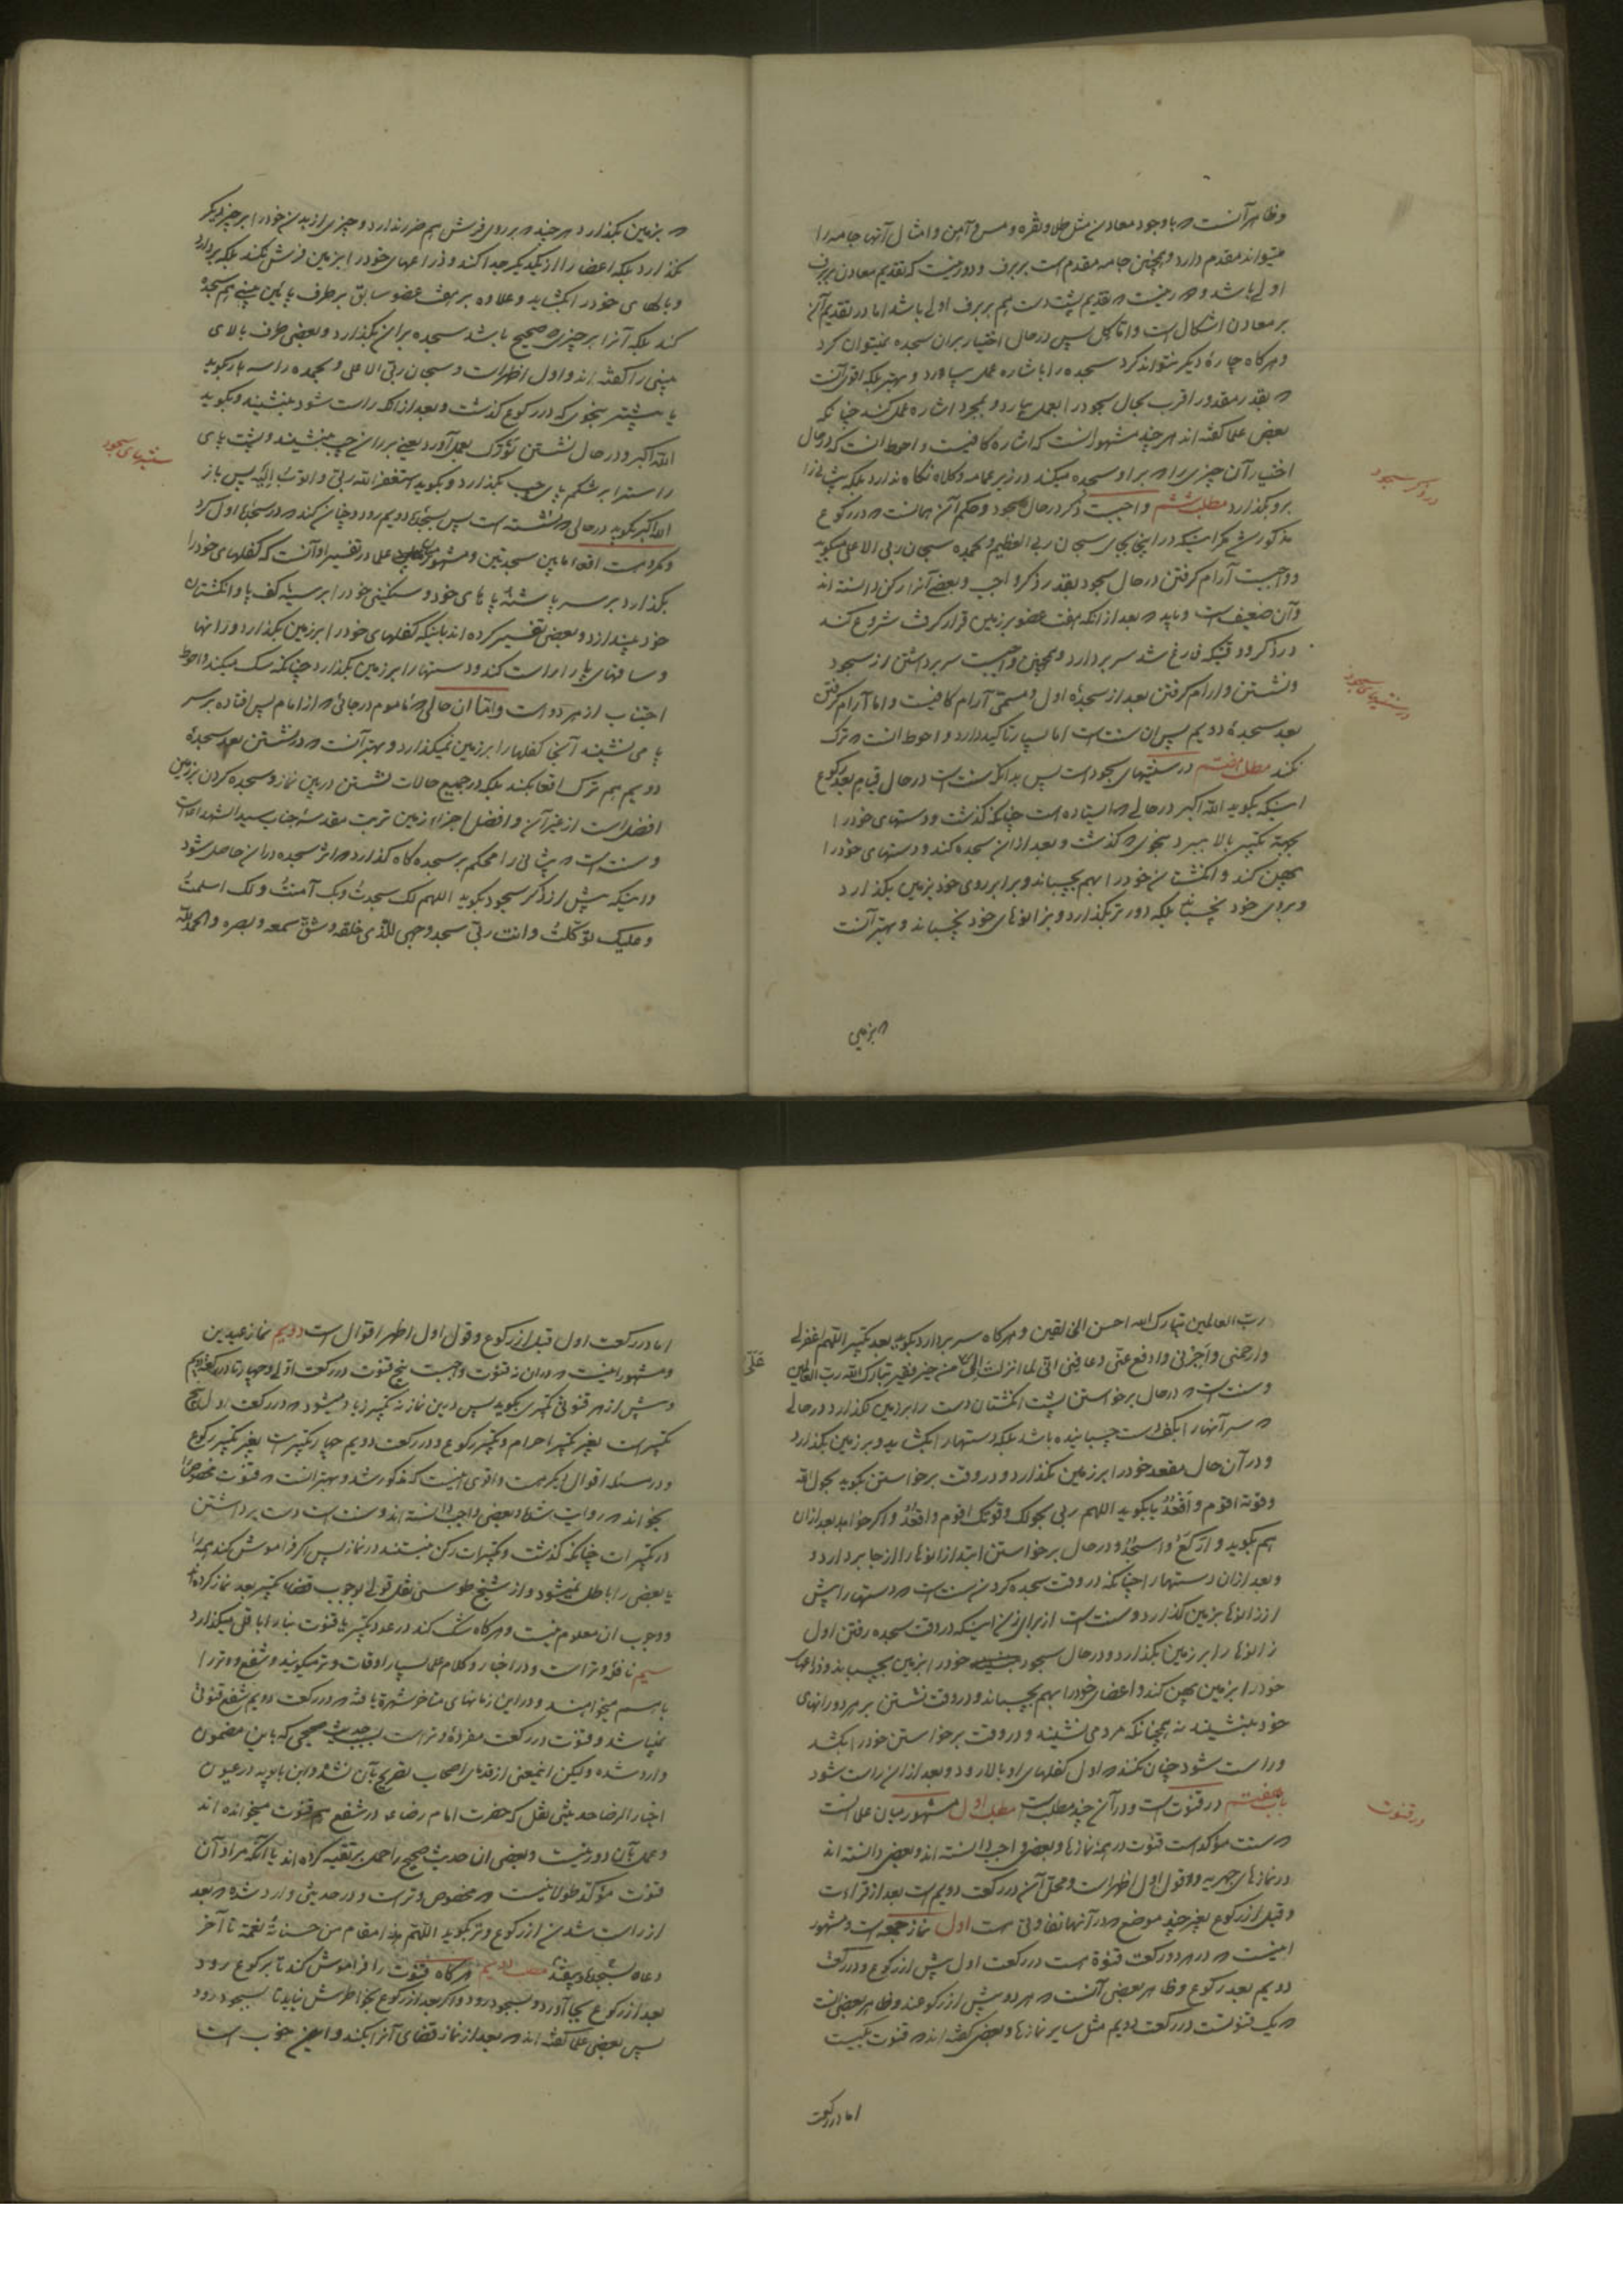 وظاهر آنست که باوجود معادن مثل طلا ونقره ومس وآهن وامثال آنها جامه را
میتواند مقدم دارد وهمچنین جامه مقدم است بربرف ودور نیست که تقدیم معادن بربرف
اولی باشد و که تقدیم پشت دست هم بربرف اولی باشد اما در تقدیم آن
بر معادن اشکال است واما کل پس درحال اختیار بران سجده نمیتوان کرد
وهرکاه چارهٔ دیکر نتواند کرد سجده را باشاره عمل بیاورد وبهتر بلکه اقوی آنست
که بقدر مقدور اقرب بحال سجود را بعمل بیارد وبمجرد اشاره عمل نکند چنانکه
بعض علما کفته اند هرچند مشهور انست که اشاره کافیست واحوط انست که درحال
اختیار آن چیزی را که براو سجده میکند درزیر عمامه وکلاه نکاه ندارد بلکه پیشانی را
برو بکذارد مطلب ششم واجبست ذکر درحال سجود وحکم آن همانست که در رکوع
مذکور شد مکر اینکه در اینجا بجای سبحان ربی العظیم وبحمده سبحان ربی الاعلی میکوید
وواجبست آرام کرفتن درحال سجود بقدر ذکر واجب وبعضی آنرا رکن دانسته اند
وآن ضعیف است وباید که بعد ازانکه هفت عضو برزمین قرار کرفت شروع کند
درذکر ووقتیکه فارغ شد سر بردارد وهمچنین واجبست سر برداشتن از سجود
ونشستن وارام کرفتن بعد از سجدهٔ اول ومسمی آرام کافیست واما آرام کرفتن
بعد سجدهٔ دویم پس ان سنت است اما بسیار تاکید دارد واحوط انست که ترک
نکند مطلب هفتم درسنتهای سجود است پس بدانکه سنت است درحال قیام بعد رکوع
اینکه بکوید الله اکبر درحالی که ایستاده است چنانکه کذشت ودستهای خود را
بجهة تکبیر بالا ببرد بنحوی که کذشت وبعد ازان سجده کند ودستهای خود را
پهن کند وانکشتان خود را بهم بچسباند وبرابر روی خود بزمین بکذارد
وبروی خود نچسباند بلکه دورتر بکذارد وبزانوهای خود نچسباند وبهتر آنست
که بزمین
درذکر سجود
درسنتهای سجود
که بزمین بکذارد هرچند که برروی فرش هم ضرر ندارد وچیزی از بدن خود را برچیز دیکر
نکذارد بلکه اعضا را از یکدیکر جدا کند وذراعهای خود را بزمین فرش نکند بلکه بردارد
وبالهای خود را بکشاید وعلاوه برهفت عضو سابق برطرف پایین بینی هم سجده
کند بلکه آنرا برچیزی که صحیح باشد سجده بران بکذارد وبعضی طرف بالای
بینی را کفته اند واول اظهر است وسبحان ربی الاعلی وبحمده را سه بار بکوید
یا بیشتر بنحوی که در رکوع کذشت وبعد ازانکه راست شود بنشیند وبکوید
الله اکبر ودرحال نشستن تورک بعمل آورد یعنی برران چپ بنشیند وپشت پای
راست را برشکم پای چپ بکذارد وبکوید استغفر الله ربی واتوب الیه پس باز
الله اکبر بکوید درحالی که نشسته است پس بسجدهٔ دویم رود وچنان کند که درسجدهٔ اول کرد
ومکروهست اقعا مابین سجدتین ومشهور میان علما در تفسیر او آنست که کفلهای خود را
بکذارد برسر پاشنه پاهای خود وسنکینی خود را برسینهٔ کف پا وانکشتان
خود بیندازد وبعضی تفسیر کرده اند باینکه کفلهای خود را برزمین بکذارد ورانها
وساقهای پا را راست کند ودستها را برزمین بکذارد چنانکه سک میکند واحوط
اجتناب از هردو است واما ان حالی که ماموم درجائی که از امام پس افتاده برسر
پا می نشیند آنجا کفلها را برزمین نمیکذارد وبهتر آنست که درنشستن بعد سجدهٔ
دویم هم ترک اقعا بکند بلکه درجمیع حالات نشستن دربین نماز وسجده کردن برزمین
افضل است از غیر آن وافضل اجزاء زمین تربت مقدسهٔ جناب سید الشهدا است
وسنت است که پیشانی را محکم برسجده کاه کذارد که اثر سجده دران حاصل شود
واینکه پیش از ذکر سجود بکوید اللهم لک سجدت وبک آمنت ولک اسلمت
وعلیک توکلت وانت ربی سجد وجهی للذی خلقه وشق سمعه وبصره والحمد لله
سنتهای سجود
رب العالمین تبارک الله احسن الخالقین وهرکاه سر بردارد بکوید بعد تکبیر اللهم اغفر لی
وارحمنی واجرنی وادفع عنی وعافنی انی لما انزلت الی من خیر فقیر تبارک الله رب العالمین
وسنت است که درحال برخواستن پشت انکشتان دست را برزمین نکذارد درحالی
که سر آنها را بکف دست چسبانیده باشد بلکه دستها را بکشاید وبرزمین بکذارد
ودرآن حال مقعد خود را برزمین نکذارد ودروقت برخواستن بکوید بحول الله
وقوته اقوم واقعد یا بکوید اللهم ربی بحولک وقوتک اقوم واقعد واکر خواهد بعد ازان
هم بکوید وارکع واسجد ودرحال برخواستن ابتدا زانوها را از جا بردارد و
وبعد ازان دستها را چنانکه دروقت سجده کردن سنت است که دستها را پیش
اززانوها بزمین کذارد وسنت است از برای زن اینکه دروقت سجده رفتن اول
زانوها را برزمین بکذارد ودرحال سجود خود را بزمین بچسباند وذراعهای
خود را بزمین پهن کند واعضای خود را بهم بچسباند ودروقت نشستن برهردو رانهای
خود بنشیند نه همچنانکه مرد می نشیند ودروقت برخواستن خود را بکشد
وراست شود چنان نکند که اول کفلهای او بالا رود وبعد ازان راست شود
باب هفتم درقنوت است ودرآن چند مطلبست مطلب اول مشهور میان علما انست
که سنت مؤکد است قنوت درهمه نمازها وبعضی واجب دانسته اند وبعضی دانسته اند
درنمازهای جهریه وقول اول اظهر است ومحل آن در رکعت دویم است بعد از قراءت
وقبل از رکوع بغیر چند موضع که درآنها تفاوتی است اول نماز جمعه است ومشهور
اینست که درهردو رکعت قنوة است در رکعت اول پیش از رکوع ودر رکعت
دویم بعد رکوع وظاهر بعضی آنست که هردو پیش از رکوعند وظاهر بعضی انست
که یک قنوتست در رکعت دویم مثل سایر نمازها وبعضی کفته اند که قنوت یکیست
اما در رکعت
علی
درقنوت
اما در رکعت اول قبل از رکوع وقول اول اظهر اقوال است دویم نماز عیدین
ومشهور اینست که دران نه قنوت واجبست پنج قنوت در رکعت اولی وچهار تا در رکعت دویم
وپیش از هر قنوتی تکبیری بکوید پس دربین نماز نه تکبیر زیاد میشود که در رکعت اول پنج
تکبیر است بغیر تکبیر احرام وتکبیر رکوع ودر رکعت دویم چهار تکبیر است بغیر تکبیر رکوع
ودر مسئله اقوال دیکر هست واقوی اینست که مذکور شد وبهتر انست که قنوت مخصوص را
بخواند که روایت شده وبعضی واجب دانسته اند وسنت است دست برداشتن
درتکبیرات چنانکه کذشت وتکبیرات رکن نیستند درنماز پس اکر فراموش کند همه را
یا بعضی را باطل نمیشود واز شیخ طوسی نقل قولی بوجوب قضاء تکبیر بعد نماز کرده اند
ووجوب ان معلوم نیست وهرکاه شک کند درعدد تکبیر یا قنوت بنا را باقل میکذارد
سیم نافلهٔ وتر است ودر اخبار وکلام علما بسیار اوقات وتر میکویند وشفع ووتر را
باهم میخواهند ودراین زمانهای متاخر شهرة یافته که در رکعت دویم شفع قنوتی
نمیباشد وقنوت در رکعت مفردهٔ وتر است بسبب حدیث صحیحی که باین مضمون
وارد شده ولیکن اینمعنی از قدمای اصحاب تصریح بآن نشده وابن بابویه درعیون
اخبار الرضا حدیثی نقل که حضرت امام رضا ع درشفع هم قنوت میخوانده اند
وعمل بآن دور نیست وبعضی ان حدیث صحیح را حمل بر تقیه کرده اند یا آنکه مراد آن
قنوت مؤکد طولانیست که مخصوص وتر است ودر حدیثی وارد شده که بعد
از راست شدن از رکوع وتر بکوید اللهم هذا مقام من حسناته نعمة تا آخر
دعا مطلب دویم هرکاه قنوت را فراموش کند تا برکوع رود
بعد از رکوع بجا آورد وبسجود رود واکر بعد از رکوع بخاطرش نیاید تا بسجود رود
پس بعضی علما کفته اند که بعد از نماز قضای آنرا بکند واین خوب است